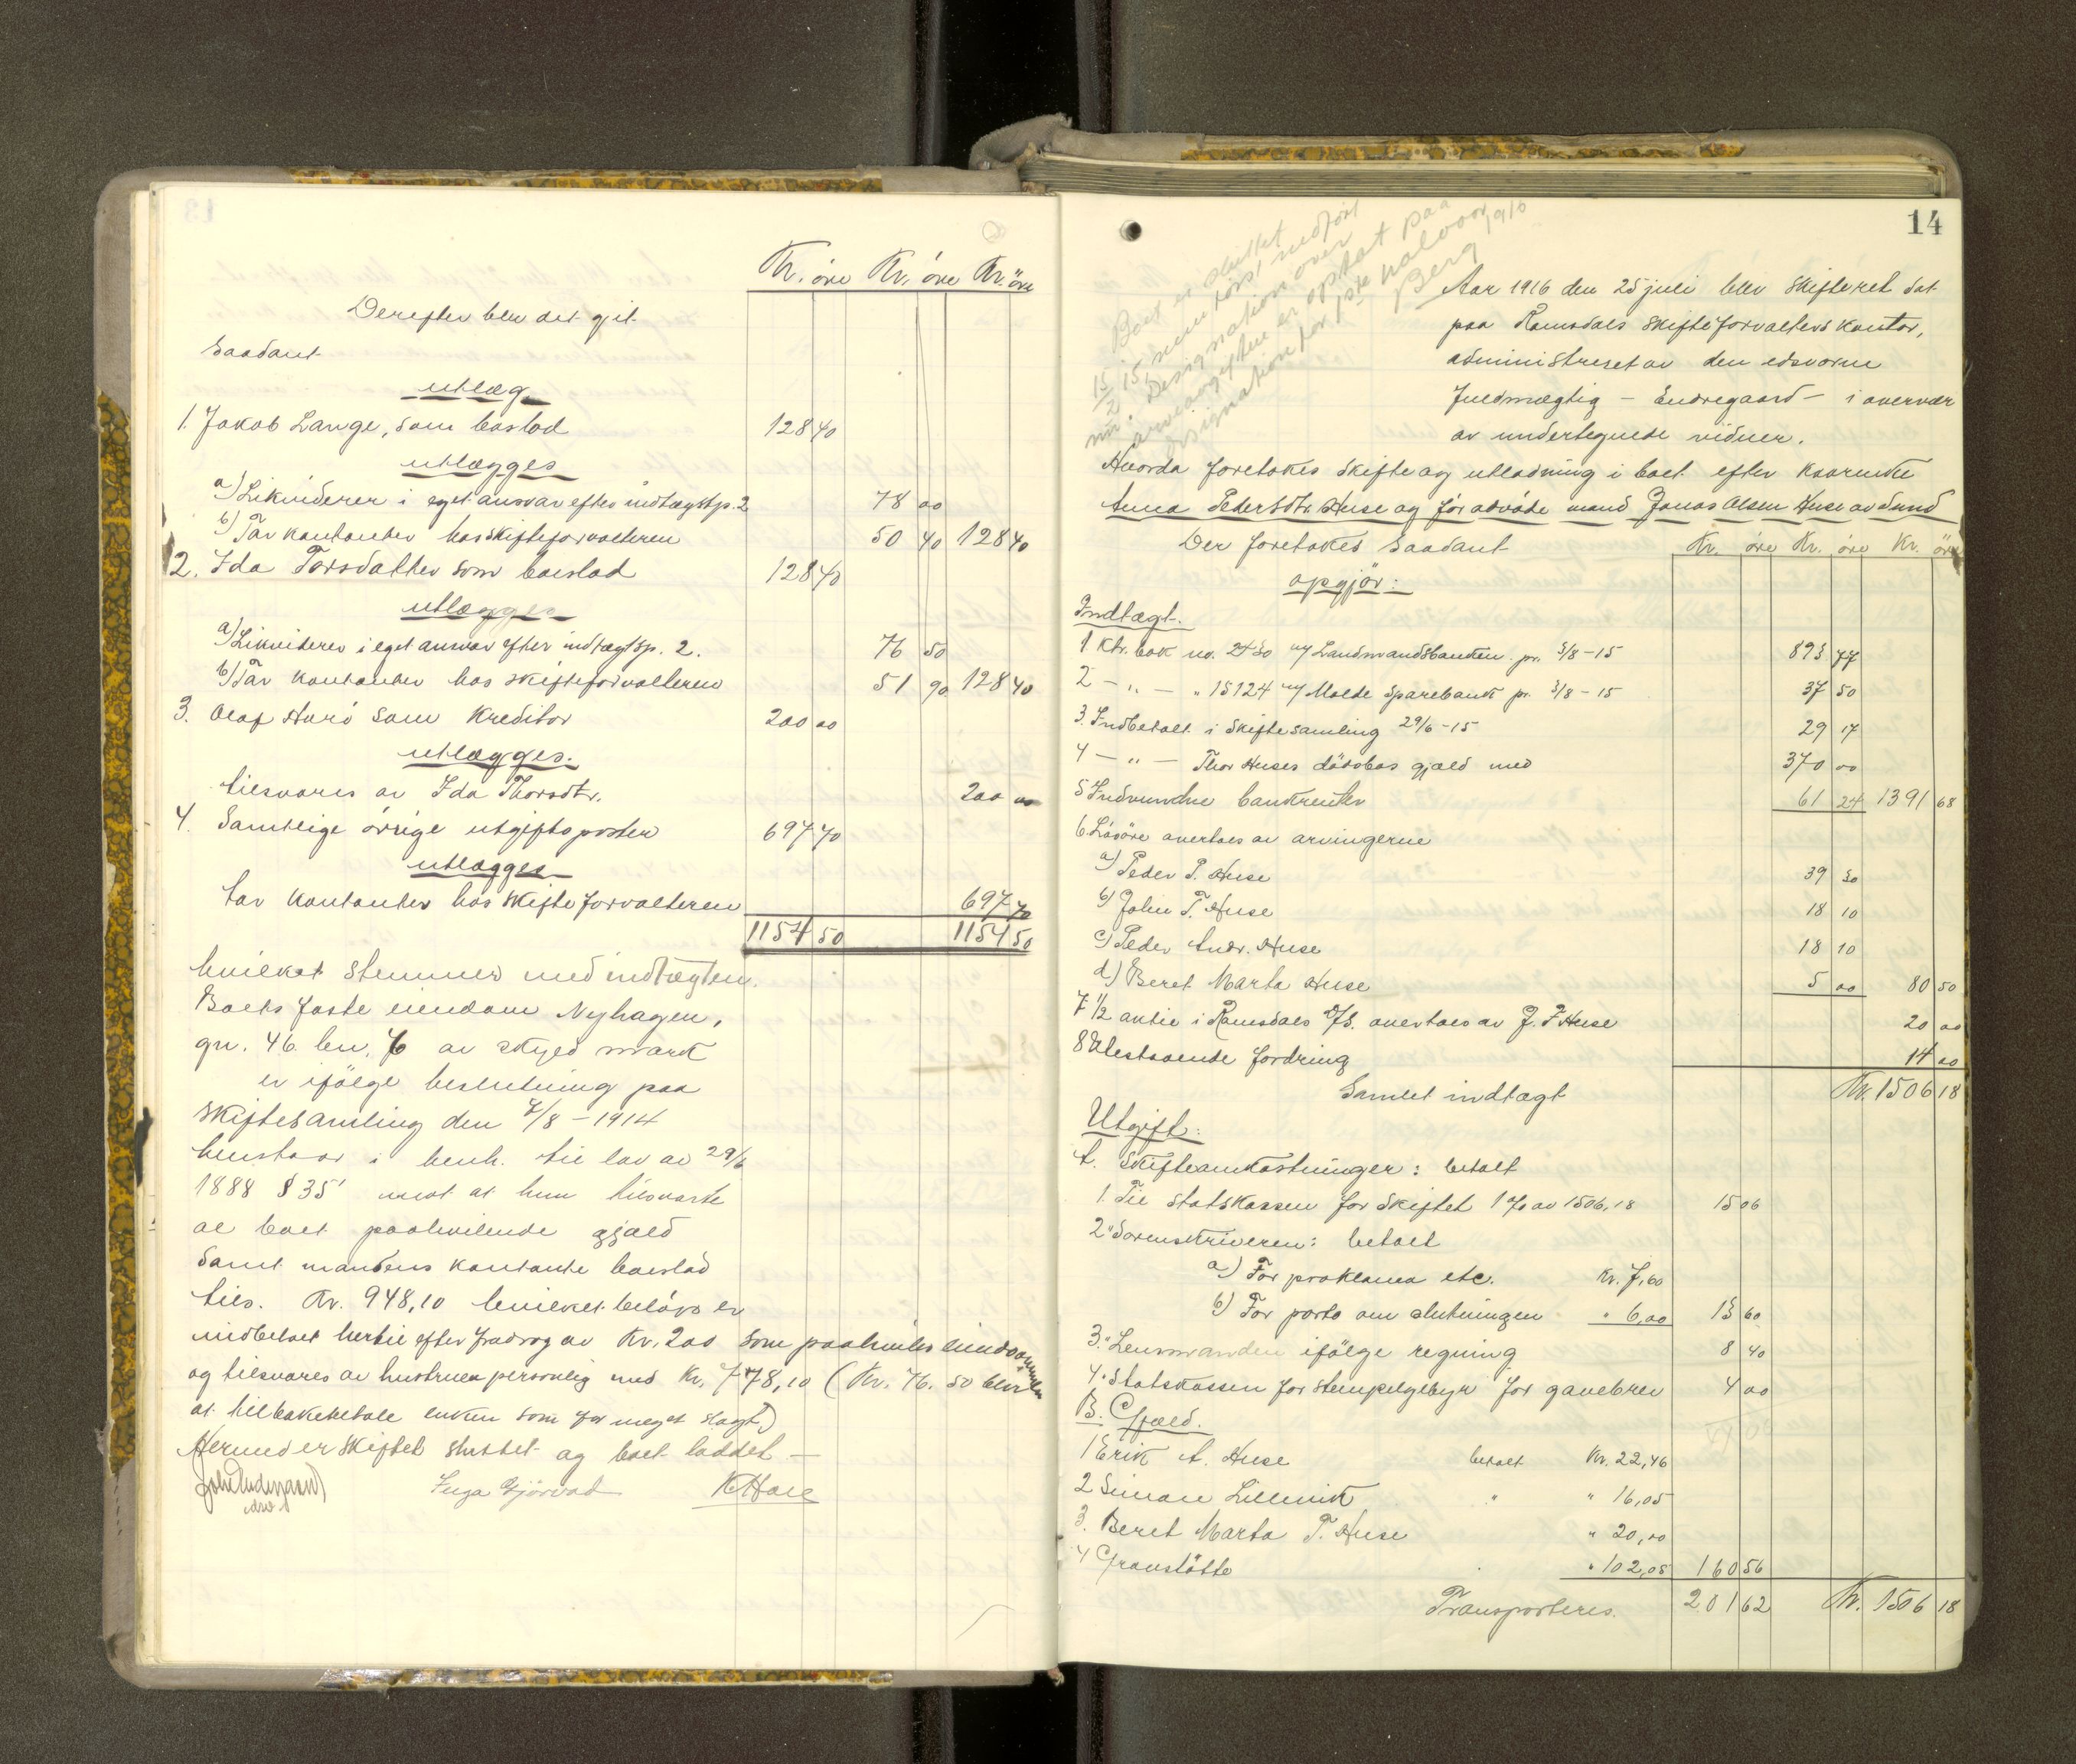 Kr. øre Kr. øre Kr. øre
Derefter blev det gjit
Saadant
utlæg
1. Jakob Lange, som boslod 128 40
utlægges
a) Likviderer i eget ansvar efter indtægtsp. 2 78 00
b) Tar kontanter hos skifteforvalteren 50 40 128 40
2. Ida Torsdatter som boeslod 128 40
utlægges
a) Likviderer i eget ansvar efter indtægtsp. 2. 76 50
b) Tar kontanter hos skifteforvalteren 51 90 128 40
3. Olaf Harö som Kreditor 200 00
utlægges.
tilsvares av Ida Thorsdtr. 200 00
4. Samtlige örige utgiftsposter 697 70
utlægges
tar kontanter hos skifteforvalteren 697 70
1154 50 1154 50
hvilket stemmer med indtægten.
Boets faste eiendom Nyhagen,
gn. 46 bn. 6 av skyld mark
er ifölge beslutning paa
skiftesamling den 7/8 - 1914
henstaar i henh. til lov av 29/6
1888 § 35 mot at hun tilsvarte
al boet paahvilende gjæld
samt mandens kontante boeslod
tils. Kr. 948,10 hvilket belöp er
indbetalt hertil efter fradrag av Kr. 200 som paahviler eiendommen
og tilsvares av hustruen personlig med Kr. 778,10 (Kr. 76.50 blir
at tilbakebetale enken som for meget utlagt)
Hermed er skiftet sluttet og boet loddet —
Inga Gjörvad K Hare
14
Boet er sluttet
15/2 15, men först indfört
nu. Designation over
arveavgiften er optat paa
designation for 1ste halvaar 1916
Berg
Aar 1916 den 25 juli blev skifteret sat
paa Romsdals skifteforvalters kontor,
administreret av den edsvorne
fuldmægtig - Endregaard - i overvær
av undertegnede vidner.
Hvorda foretokes skifte og utlodning i boet efter kaarenke
Anna Pedersdtr. Huse og för avdöde mand Jonas Olsen Huse av Sund
Der foretokes saadant Kr. öre Kr. öre Kr. öre
opgjör:
Indtægt.
1. Ktr. bok no. 2430 m/ Landmandsbanken pr. 3/8 - 15 893 77
2 - " - " 15124 m/ Molde Sparebank pr. 3/8 - 15 37 50
3. Indbetalt i skiftesamling 29/6 - 15 29 17
4 - " - Thor Huses dödsbos gjæld med 370 00
5 Indvundne bankrenter 61 24 1391 68
6 Lösöre overtoes av arvingerne
a) Peder P. Huse 39 30
b) John T. Huse 18 10
c) Peder Andr. Huse 18 10
d) Beret Marta Huse 5 00 80 50
7 1/2 aktie i Romsdals A/S. overtoes av J. T. Huse 20 00
8 Utestaaende fordring 14 00
Samlet indtægt Kr. 1506 18
Utgift:
A. Skifteomkostninger: betalt
1. Til statskassen for skiftet 1 % av 1506,18 15 06
2" Sorenskriveren: betalt
a) For proklama etc. Kr. 7,60
b) For porto om slutningen " 6,00 13 60
3." Lensmanden ifölge regning 8 40
4." Statskassen for stempelgebyr for gavebrev 4 00
B. Gjæld.
1 Erik A. Huse betalt Kr. 22,46
2 Simon Lillevik " " 16,05
3. Beret Marta T. Huse " 20,00
4 Gravstötte " 102,05 160 56
Transporteres. 201 62 Kr. 1506 18